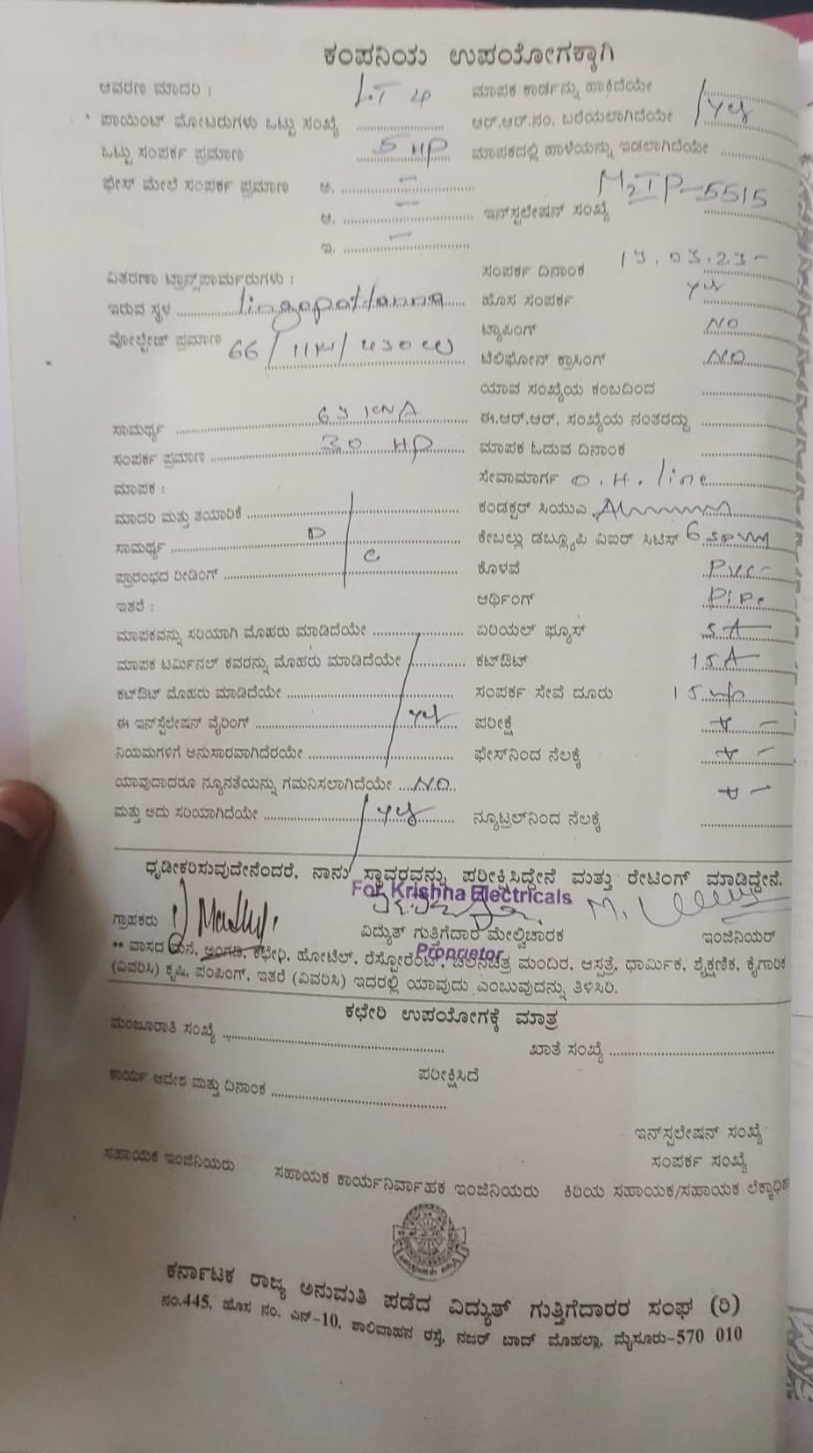 ಕಂಪನಿಯ ಉಪಯೋಗಕ್ಕಾಗಿ
ಆವರಣ ಮಾದರಿ : L.T 4 ಮಾಪಕ ಕಾರ್ಡನ್ನು ಹಾಕಿದೆಯೇ
ಪಾಯಿಂಟ್ ಮೋಟರುಗಳು ಒಟ್ಟು ಸಂಖ್ಯೆ ಆರ್.ಆರ್.ನಂ. ಬರೆಯಲಾಗಿದೆಯೇ Yes
ಒಟ್ಟು ಸಂಪರ್ಕ ಪ್ರಮಾಣ 5 HP ಮಾಪಕದಲ್ಲಿ ಹಾಳೆಯನ್ನು ಇಡಲಾಗಿದೆಯೇ
ಫೇಸ್ ಮೇಲೆ ಸಂಪರ್ಕ ಪ್ರಮಾಣ ಅ. –
ಆ. – ಇನ್‌ಸ್ಟಲೇಷನ್ ಸಂಖ್ಯೆ M2IP-5515
ಇ. –
ವಿತರಣಾ ಟ್ರಾನ್ಸ್‌ಫಾರ್ಮರುಗಳು : ಸಂಪರ್ಕ ದಿನಾಂಕ
ಇರುವ ಸ್ಥಳ lingapattanna ಹೊಸ ಸಂಪರ್ಕ Yes
ಟ್ಯಾಪಿಂಗ್ NO
ವೋಲ್ಟೇಜ್ ಪ್ರಮಾಣ 66/11KV/430 ಟೆಲಿಫೋನ್ ಕ್ರಾಸಿಂಗ್ NO
ಯಾವ ಸಂಖ್ಯೆಯ ಕಂಬದಿಂದ
ಸಾಮರ್ಥ್ಯ 63 KVA ಈ.ಆರ್.ಆರ್. ಸಂಖ್ಯೆಯ ನಂತರದ್ದು
ಸಂಪರ್ಕ ಪ್ರಮಾಣ 30 HP ಮಾಪಕ ಓದುವ ದಿನಾಂಕ
ಮಾಪಕ : ಸೇವಾಮಾರ್ಗ O.H. line
ಮಾದರಿ ಮತ್ತು ತಯಾರಿಕೆ ಕಂಡಕ್ಟರ್ ಸಿಯುವಿ
ಸಾಮರ್ಥ್ಯ D ಕೇಬಲ್ಲು ಡಬ್ಲ್ಯೂಪಿ ವಿಐಆರ್ ಸಿಟಿಸ್
ಪ್ರಾರಂಭದ ರೀಡಿಂಗ್ C ಕೊಳವೆ PVC
ಇತರೆ : ಆರ್ಥಿಂಗ್ Pipe
ಮಾಪಕವನ್ನು ಸರಿಯಾಗಿ ಮೊಹರು ಮಾಡಿದೆಯೇ ಏರಿಯಲ್ ಫ್ಯೂಸ್ 5A
ಮಾಪಕ ಟರ್ಮಿನಲ್ ಕವರನ್ನು ಮೊಹರು ಮಾಡಿದೆಯೇ ಕಟ್‌ಔಟ್ 15A
ಕಟ್‌ಔಟ್ ಮೊಹರು ಮಾಡಿದೆಯೇ ಸಂಪರ್ಕ ಸೇವೆ ದೂರು
ಈ ಇನ್‌ಸ್ಟಲೇಷನ್ ವೈರಿಂಗ್ Yes ಪರೀಕ್ಷೆ
ನಿಯಮಗಳಿಗೆ ಅನುಸಾರವಾಗಿದೆರಯೇ ಫೇಸ್‌ನಿಂದ ನೆಲಕ್ಕೆ
ಯಾವುದಾದರೂ ನ್ಯೂನತೆಯನ್ನು ಗಮನಿಸಲಾಗಿದೆಯೇ NO
ಮತ್ತು ಅದು ಸರಿಯಾಗಿದೆಯೇ Yes ನ್ಯೂಟ್ರಲ್‌ನಿಂದ ನೆಲಕ್ಕೆ
ಧೃಡೀಕರಿಸುವುದೇನೆಂದರೆ, ನಾನು ಸ್ಥಾವರವನ್ನು ಪರೀಕ್ಷಿಸಿದ್ದೇನೆ ಮತ್ತು ರೇಟಿಂಗ್ ಮಾಡಿದ್ದೇನೆ.
For Krishna Electricals
ಗ್ರಾಹಕರು ವಿದ್ಯುತ್ ಗುತ್ತಿಗೆದಾರ ಮೇಲ್ವಿಚಾರಕ ಇಂಜಿನಿಯರ್
Proprietor
** ವಾಸದ ಮನೆ, ಅಂಗಡಿ, ಕಛೇರಿ, ಹೋಟೆಲ್, ರೆಸ್ಟೋರೆಂಟ್, ಚಲನಚಿತ್ರ ಮಂದಿರ, ಆಸ್ಪತ್ರೆ, ಧಾರ್ಮಿಕ, ಶೈಕ್ಷಣಿಕ, ಕೈಗಾರಿಕ
(ವಿವರಿಸಿ) ಕೃಷಿ, ಪಂಪಿಂಗ್, ಇತರೆ (ವಿವರಿಸಿ) ಇದರಲ್ಲಿ ಯಾವುದು ಎಂಬುವುದನ್ನು ತಿಳಿಸಿರಿ.
ಕಛೇರಿ ಉಪಯೋಗಕ್ಕೆ ಮಾತ್ರ
ಮಂಜೂರಾತಿ ಸಂಖ್ಯೆ ಖಾತೆ ಸಂಖ್ಯೆ
ಕಾರ್ಯ ಆದೇಶ ಮತ್ತು ದಿನಾಂಕ ಪರೀಕ್ಷಿಸಿದೆ
ಇನ್‌ಸ್ಟಲೇಷನ್ ಸಂಖ್ಯೆ
ಸಂಪರ್ಕ ಸಂಖ್ಯೆ
ಸಹಾಯಕ ಇಂಜಿನಿಯರು ಸಹಾಯಕ ಕಾರ್ಯನಿರ್ವಾಹಕ ಇಂಜಿನಿಯರು ಕಿರಿಯ ಸಹಾಯಕ/ಸಹಾಯಕ
ಕರ್ನಾಟಕ ರಾಜ್ಯ ಅನುಮತಿ ಪಡೆದ ವಿದ್ಯುತ್ ಗುತ್ತಿಗೆದಾರರ ಸಂಘ (ರಿ)
ನಂ.445, ಹೊಸ ನಂ. ಎನ್-10, ಶಾಲಿವಾಹನ ರಸ್ತೆ, ನಜರ್ ಬಾದ್ ಮೊಹಲ್ಲಾ, ಮೈಸೂರು-570 010